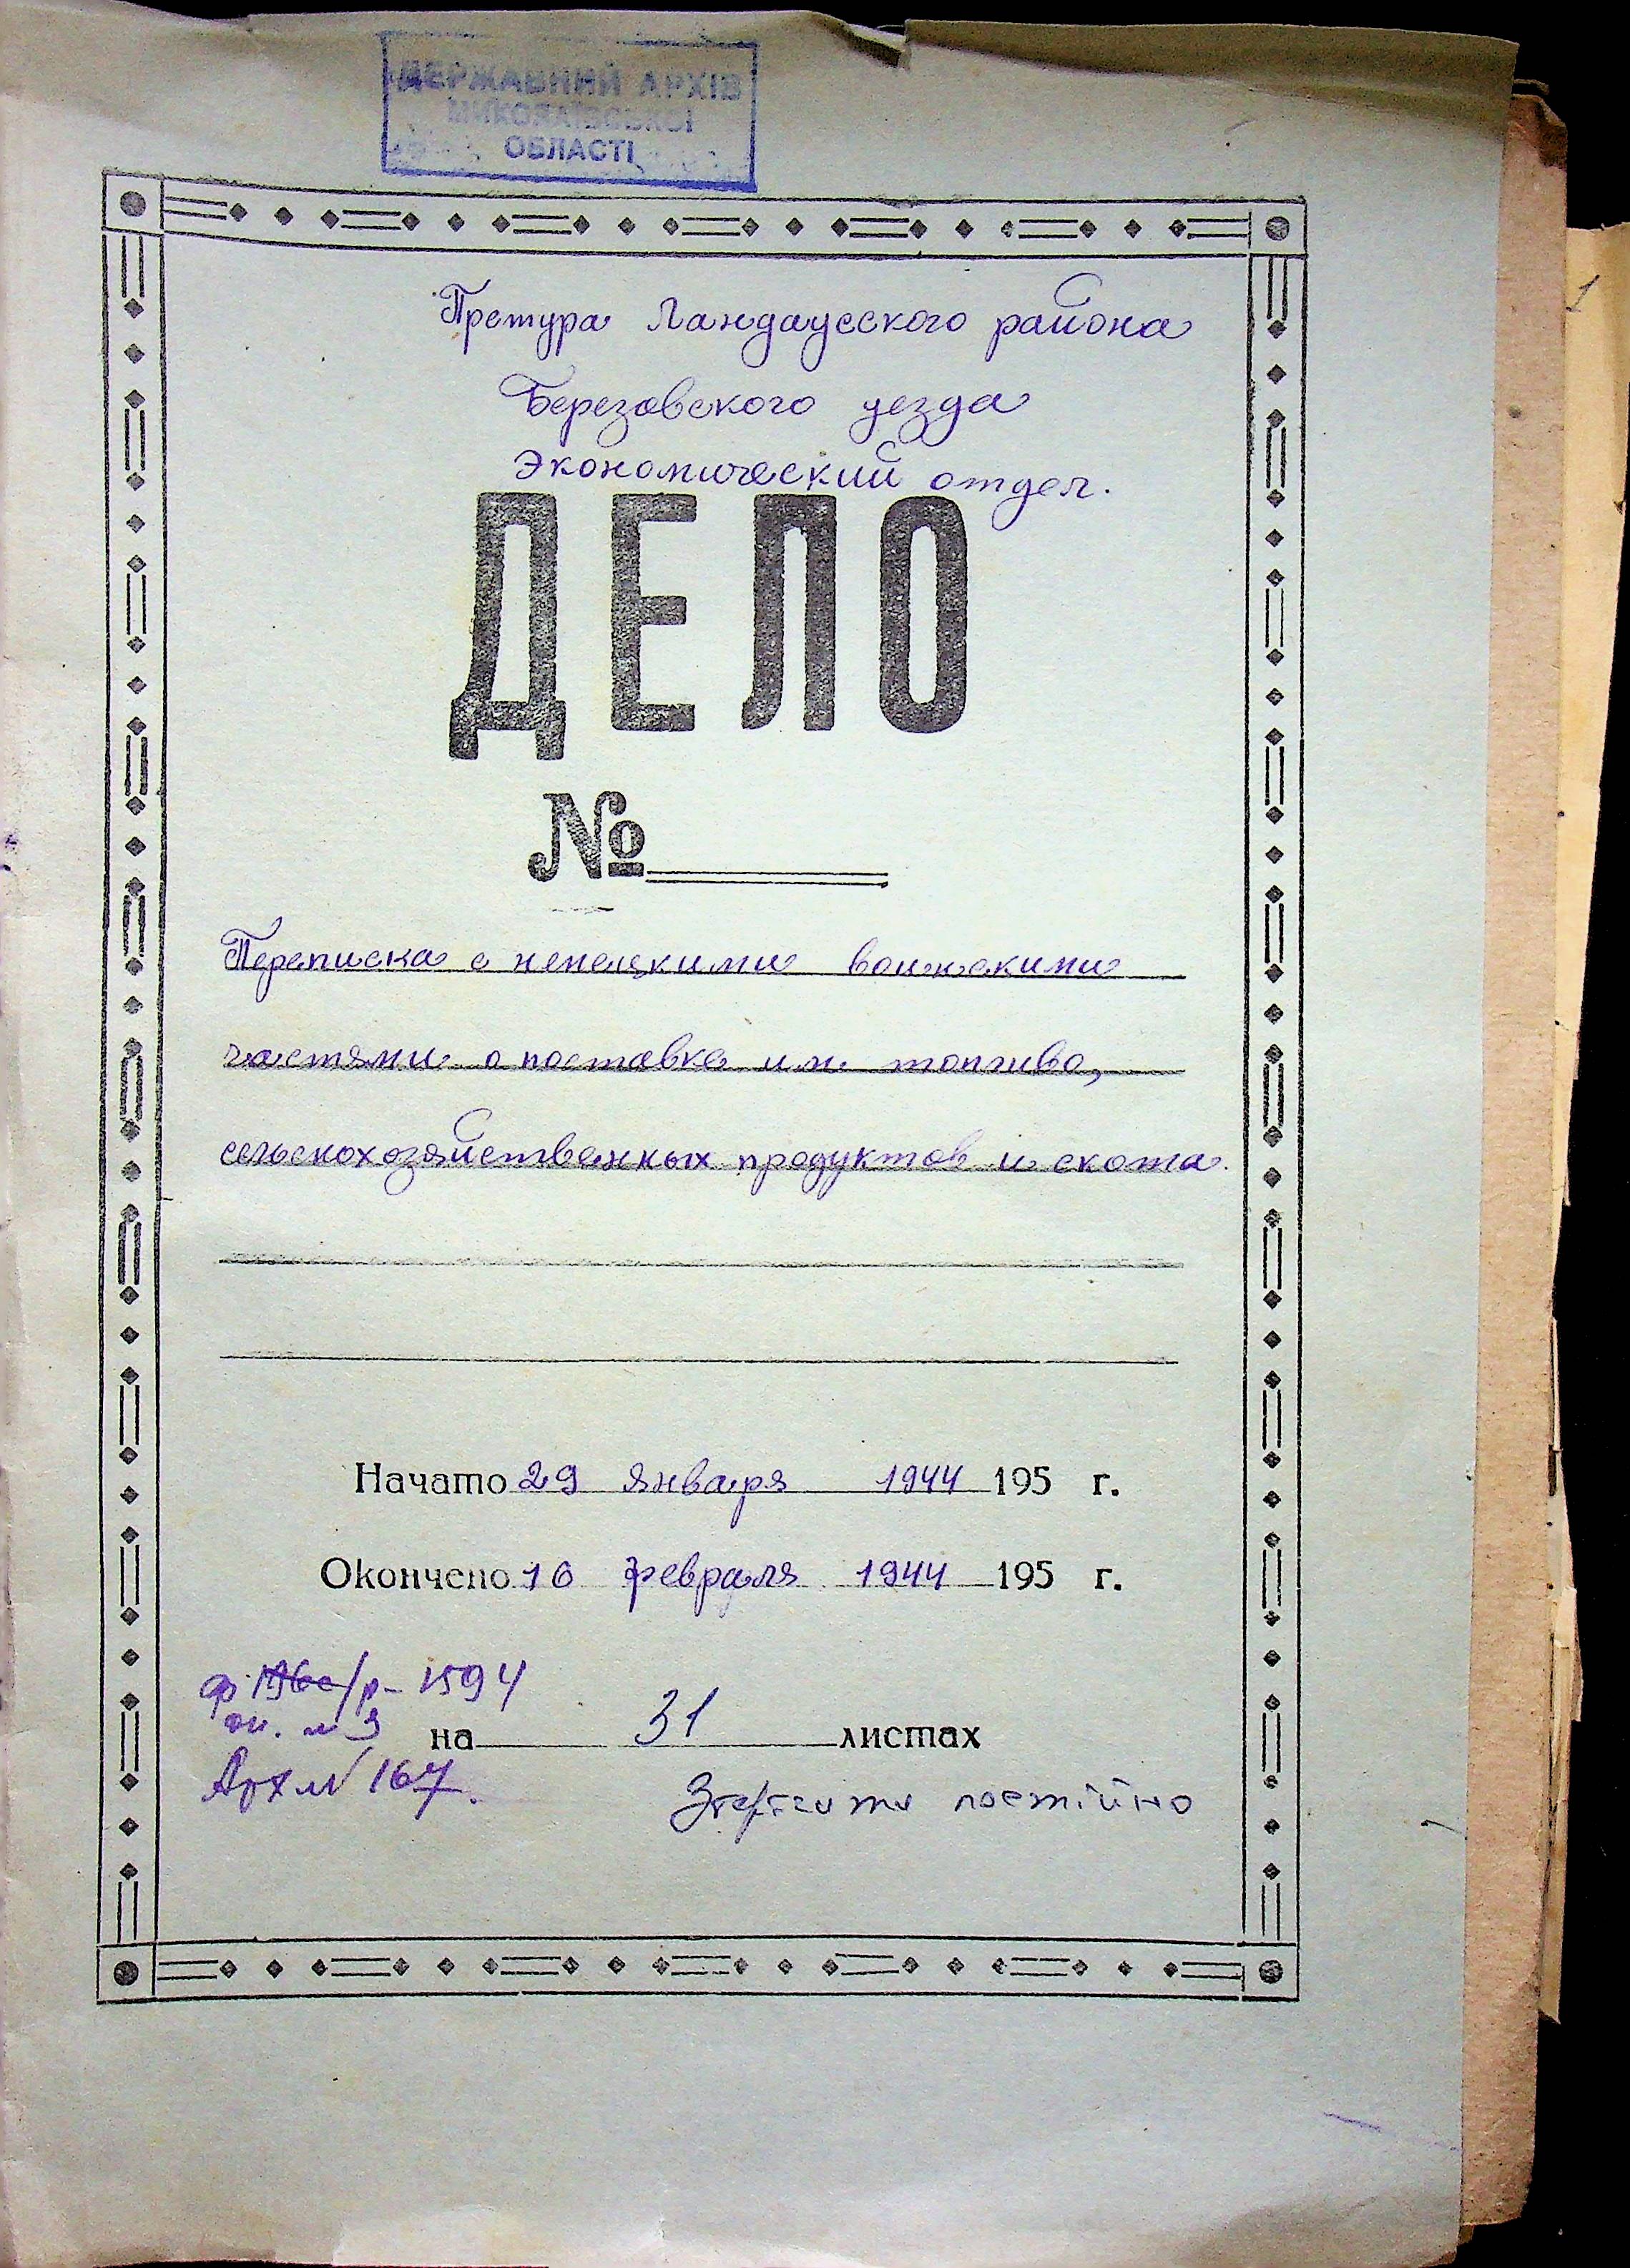 ДЕРЖАВНИЙ АРХІВ
МИКОЛАЇВСЬКОЇ
ОБЛАСТІ
Претура Ландауского района
Березовского уезда
Экономический отдел.
ДЕЛО
№
Переписка с немецкими воинскими
частями о поставке им топлива,
сельскохозяйственных продуктов и скота.
Начато 29 января 1944 195 г.
Окончено 16 февраля 1944 195 г.
ф. /р-1594
оп. № 3
на 31 листах
Арх № 167.
Зберігати постійно
1